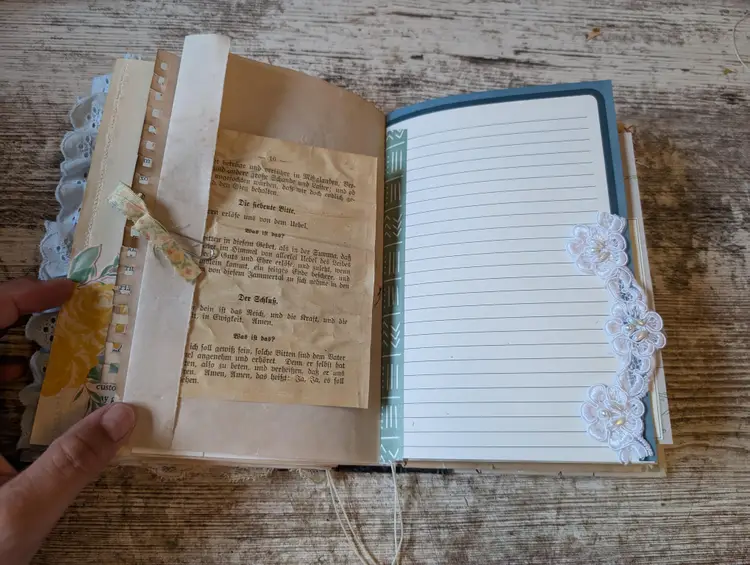 und verführe in Mißglauben, Ver-
und andere große Schande und Laster; und ob
angefochten würden, daß wir doch endlich ge-
den Sieg behalten.
Die siebente Bitte.
ern erlöse uns von dem Uebel.
Was ist das?
bitten in diesem Gebet, als in der Summa, daß
ter im Himmel von allerlei Uebel des Leibes
Guts und Ehre erlöse, und zuletzt, wenn
lein kommt, ein seliges Ende beschere, und
von diesem Jammertal zu sich nehme in den
Der Schluß.
dein ist das Reich, und die Kraft, und die
t, in Ewigkeit. Amen.
Was ist das?
ich soll gewiß sein, solche Bitten sind dem Vater
el angenehm und erhöret. Denn er selbst hat
ten, also zu beten, und verheißen, daß er uns
en. Amen, Amen, das heißt: Ja, Ja, es soll
ehen.
custo